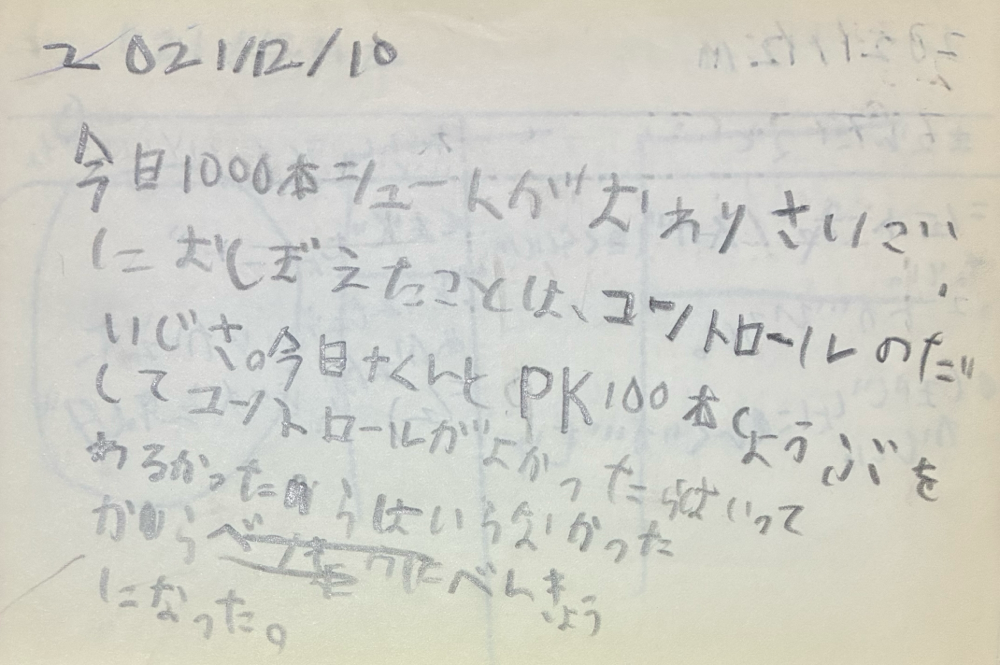 2021/12/10
今日1000本シュートがおわりさいこい
にだしぎえたことは、コントロールのだ
いじさ。今日たくんとPK100本しょうぶを
してコントロールがよかったらはいって
わるかったからはいらないかった
から べんきよう
になった。